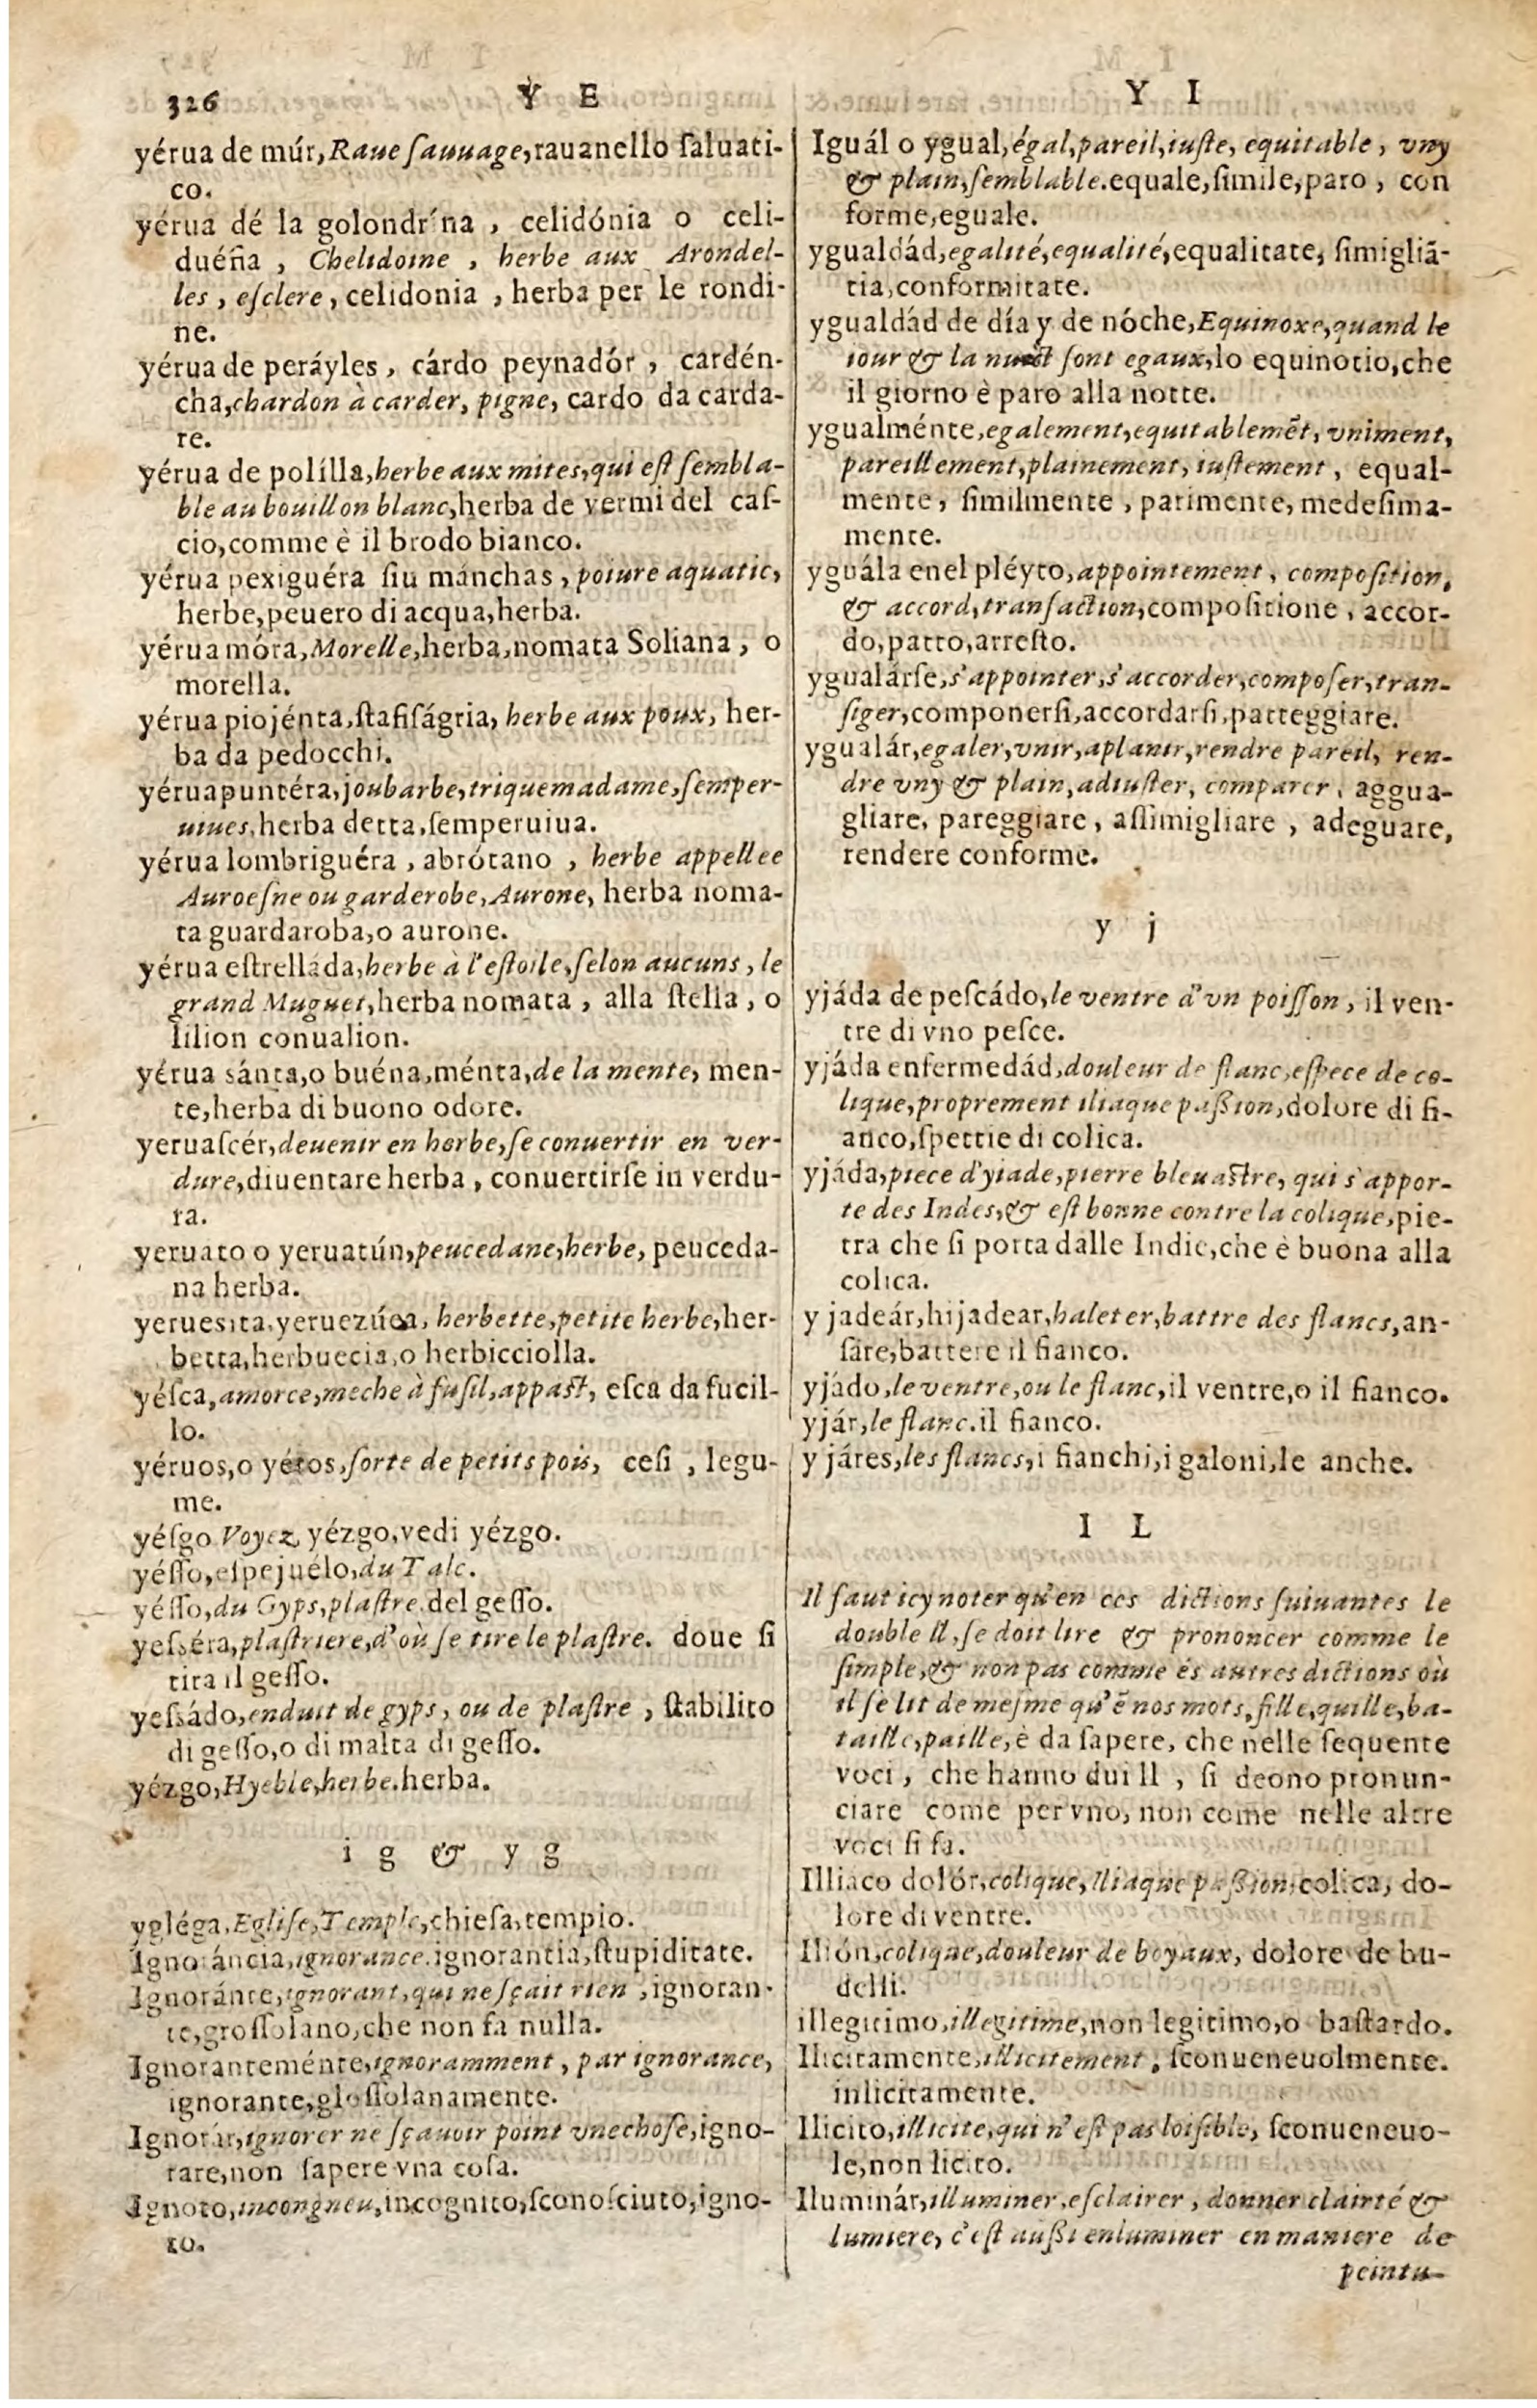 326
Y E
yérua de múr, Raue ſauuage, rauanello ſaluati-
co.
yérua dé la golondrína , celidónia o celi-
duéña , Chelidoine , herbe aux Arondel-
les , eſclere, celidonia , herba per le rondi-
ne.
yérua de peráyles , cárdo peynadór , cardén-
cha, chardon à carder, pigne, cardo da carda-
re.
yérua de polílla, herbe aux mites, qui eſt ſembla-
ble au bouillon blanc, herba de vermi del caſ-
cio, comme è il brodo bianco.
yérua pexiguéra ſiu mánchas , poiure aquatic,
herbe, peuero di acqua, herba.
yérua móra, Morelle, herba, nomata Soliana , o
morella.
yérua piojénta, ſtafiſágria, herbe aux poux, her-
ba da pedocchi.
yérua puntéra, joubarbe, triquemadame, ſemper-
uiues, herba detta, ſemperuiua.
yérua lombriguéra , abrótano , herbe appellee
Auroeſne ou garderobe, Aurone, herba noma-
ta guardaroba, o aurone.
yérua eſtrelláda, herbe à l'eſtoile, ſelon aucuns , le
grand Muguet, herba nomata , alla ſtella , o
lilion conualion.
yérua sánta, o buéna, ménta, de la mente, men-
te, herba di buono odore.
yeruaſcér, deuenir en herbe, ſe conuertir en ver-
dure, diuentare herba , conuertirſe in verdu-
ra.
yeruato o yeruatún, peucedane, herbe, peuceda-
na herba.
yeruesita, yeruezúea, herbette, petite herbe, her-
betta, herbuecia, o herbicciolla.
yéſca, amorce, meche à fuſil, appaſt, eſca da fucil-
lo.
yéruos, o yéros, ſorte de petits pois, ceſi , legu-
me.
yéſgo Voyez yézgo, vedi yézgo.
yéſſo, eſpejuélo, du Talc.
yéſſo, du Gyps, plaſtre. del geſſo.
yeſséra, plaſtriere, d'où ſe tire le plaſtre. doue ſi
tira il geſſo.
yeſsádo, enduit de gyps, ou de plaſtre , ſtabilito
di geſſo, o di malta di geſſo.
yézgo, Hyeble, herbe. herba.
i g & y g
ygléga, Egliſe, Temple, chieſa, tempio.
Ignoráncia, ignorance. ignorantia, ſtupiditate.
Ignoránte, ignorant, qui ne ſçait rien , ignoran-
te, groſſolano, che non fa nulla.
Ignoranteménte, ignoramment , par ignorance,
ignorante, gloſſolanamente.
Ignorár, ignorer ne ſçauoir point vne choſe, igno-
rare, non ſapere vna coſa.
Ignoto, incongneu, incognito, ſconoſciuto, igno-
to.
Y I
Iguál o ygual, égal, pareil, iuſte, equitable , vny
& plain, ſemblable. equale, ſimile, paro , con
forme, eguale.
ygualdád, egalité, equalité, equalitate, ſimigliã-
tia, conformitate.
ygualdád de día y de nóche, Equinoxe, quand le
iour & la nuict ſont egaux, lo equinotio, che
il giorno è paro alla notte.
ygualménte, egalement, equitablemẽt, vniment,
pareillement, plainement, iuſtement , equal-
mente , ſimilmente , parimente, medeſima-
mente.
yguála enel pléyto, appointement , compoſition,
& accord, tranſaction, compoſitione , accor-
do, patto, arreſto.
ygualárſe, s'appointer, s'accorder, compoſer, tran-
ſiger, componerſi, accordarſi, patteggiare.
ygualár, egaler, vnir, aplanir, rendre pareil, ren-
dre vny & plain, adiuſter, comparer, aggua-
gliare, pareggiare , aſſimigliare , adeguare,
rendere conforme.
y j
yjáda de peſcádo, le ventre d'vn poiſſon , il ven-
tre di vno peſce.
yjáda enfermedád, douleur de flanc, eſpece de co-
lique, proprement iliaque paſsion, dolore di fi-
anco, ſpettie di colica.
yjáda, piece d'yiade, pierre bleuaſtre, qui s'appor-
te des Indes, & eſt bonne contre la colique, pie-
tra che ſi porta dalle Indie, che è buona alla
colica.
y jadeár, hijadear, haleter, battre des flancs, an-
ſare, battere il fianco.
yjádo, le ventre, ou le flanc, il ventre, o il fianco.
yjár, le flanc. il fianco.
y járes, les flancs, i fianchi, i galoni, le anche.
I L
Il faut icy noter qu'en ces dictions ſuiuantes le
double ll, ſe doit lire & prononcer comme le
ſimple, & non pas comme és autres dictions où
il ſe lit de meſme qu'ẽ nos mots, fille, quille, ba-
taille, paille, è da ſapere, che nelle ſequente
voci , che hanno dui ll , ſi deono pronun-
ciare come per vno, non come nelle altre
voci ſi fa.
Illiaco dolór, colique, Iliaque paſsion, colica, do-
lore di ventre.
Ilión, colique, douleur de boyaux, dolore de bu-
delli.
illegitimo, illegitime, non legitimo, o baſtardo.
Ilicitamente, illicitement , ſconueneuolmente.
inlicitamente.
Ilicito, illicite, qui n'eſt pas loiſible, ſconueneuo-
le, non licito.
Iluminár, illuminer, eſclairer , donner clairté &
lumiere, c'eſt auſsi enluminer en maniere de
peintu-